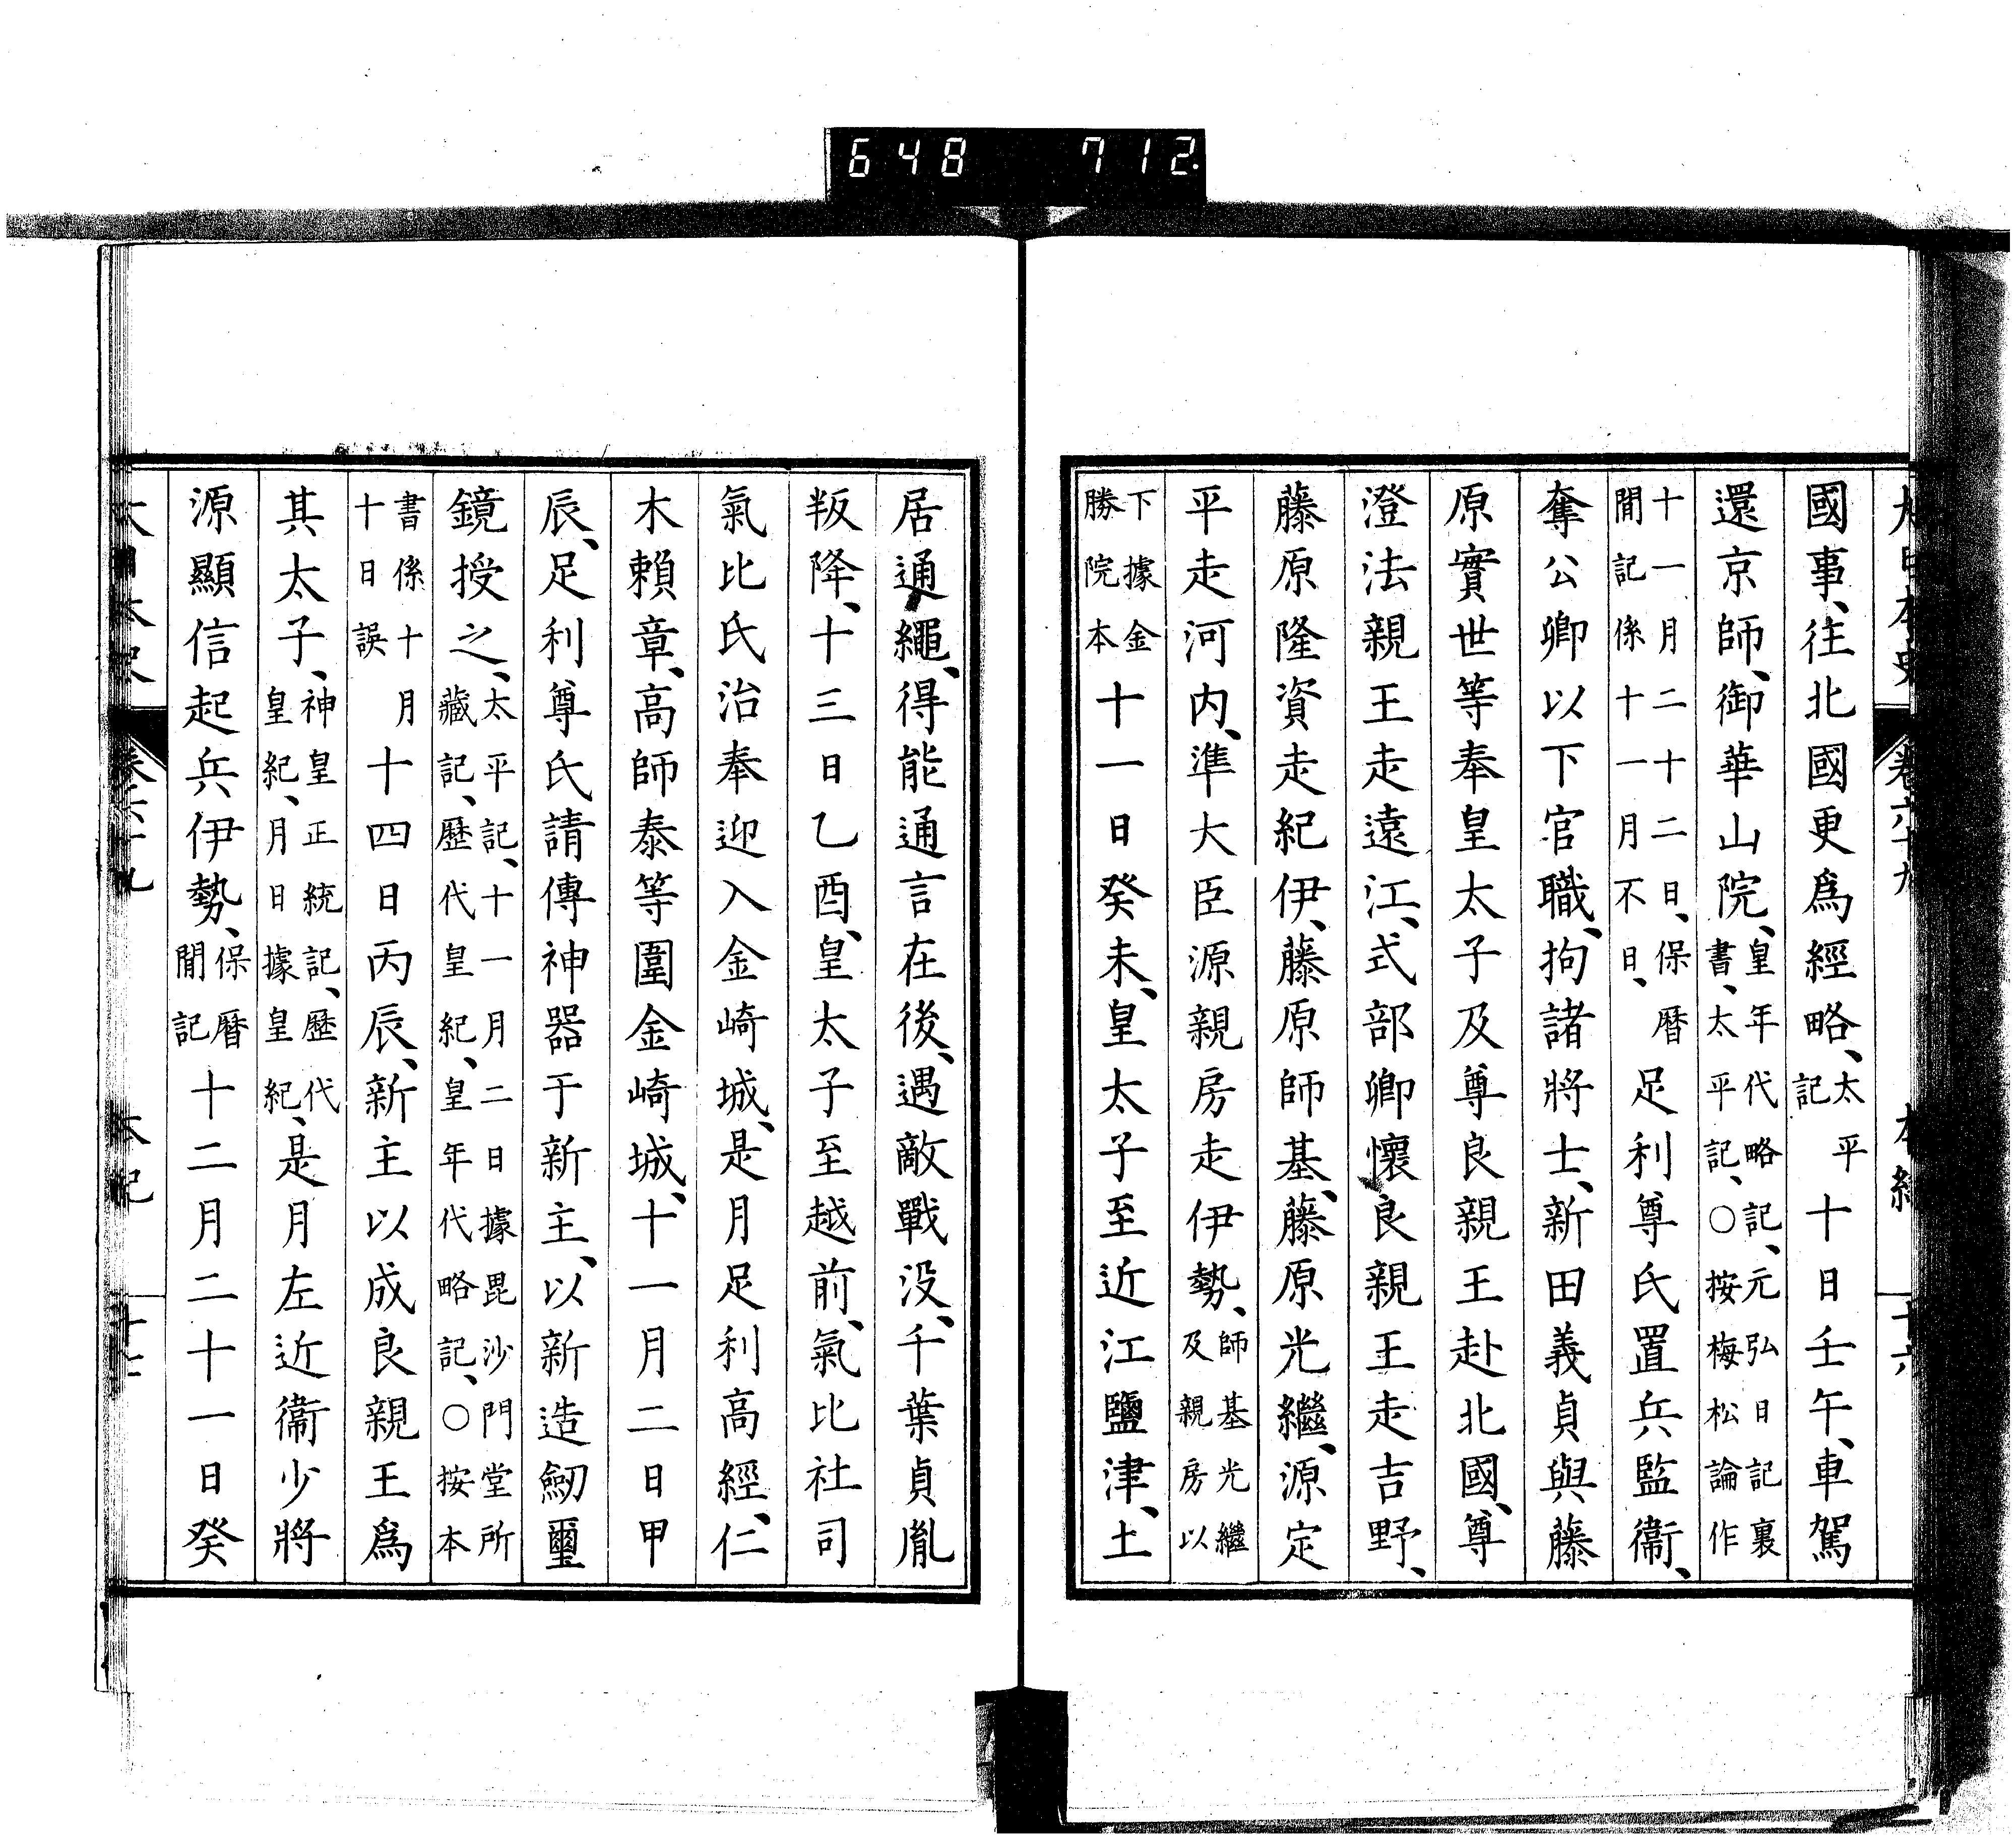 648 712
大日本史 卷六十九 本紀 十六
國事、往北國更爲經略、太平記十日壬午、車駕
還京師、御華山院、皇年代略記、元弘日記裏書、太平記、○按梅松論作
十一月二十二日、保曆間記係十一月不日、足利尊氏置兵監衞、
奪公卿以下官職、拘諸將士、新田義貞與藤
原實世等奉皇太子及尊良親王赴北國、尊
澄法親王走遠江、式部卿懷良親王走吉野、
藤原隆資走紀伊、藤原師基、藤原光繼、源定
平走河内、準大臣源親房走伊勢、師基光繼及親房以
下據金勝院本十一日癸未、皇太子至近江鹽津、土
居通繩、得能通言在後、遇敵戰没、千葉貞胤
叛降、十三日乙酉、皇太子至越前、氣比社司
氣比氏治奉迎入金崎城、是月足利高經、仁
木賴章、高師泰等圍金崎城、十一月二日甲
辰、足利尊氏請傳神器于新主、以新造劒璽
鏡授之、太平記、十一月二日據毘沙門堂所藏記、歷代皇紀、皇年代略記、○按本
書係十月十日誤十四日丙辰、新主以成良親王爲
其太子、神皇正統記、歷代皇紀、月日據皇紀、是月左近衞少將
源顯信起兵伊勢、保曆間記十二月二十一日癸
大日本史 卷六十九 本紀 十七